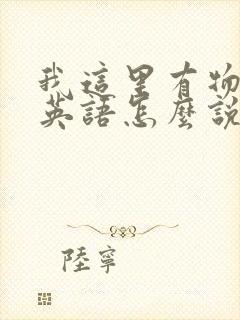 我這里有物
英語怎麼說
陸寧